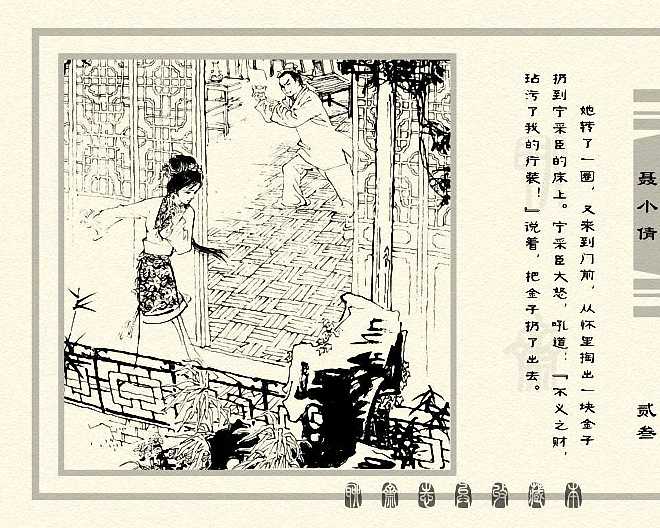 她转了一圈，又来到门前，从怀里掏出一块金子
扔到宁采臣的床上。宁采臣大怒，吼道：『不义之财，
玷污了我的行装！』说着，把金子扔了出去。
聂小倩
贰叁